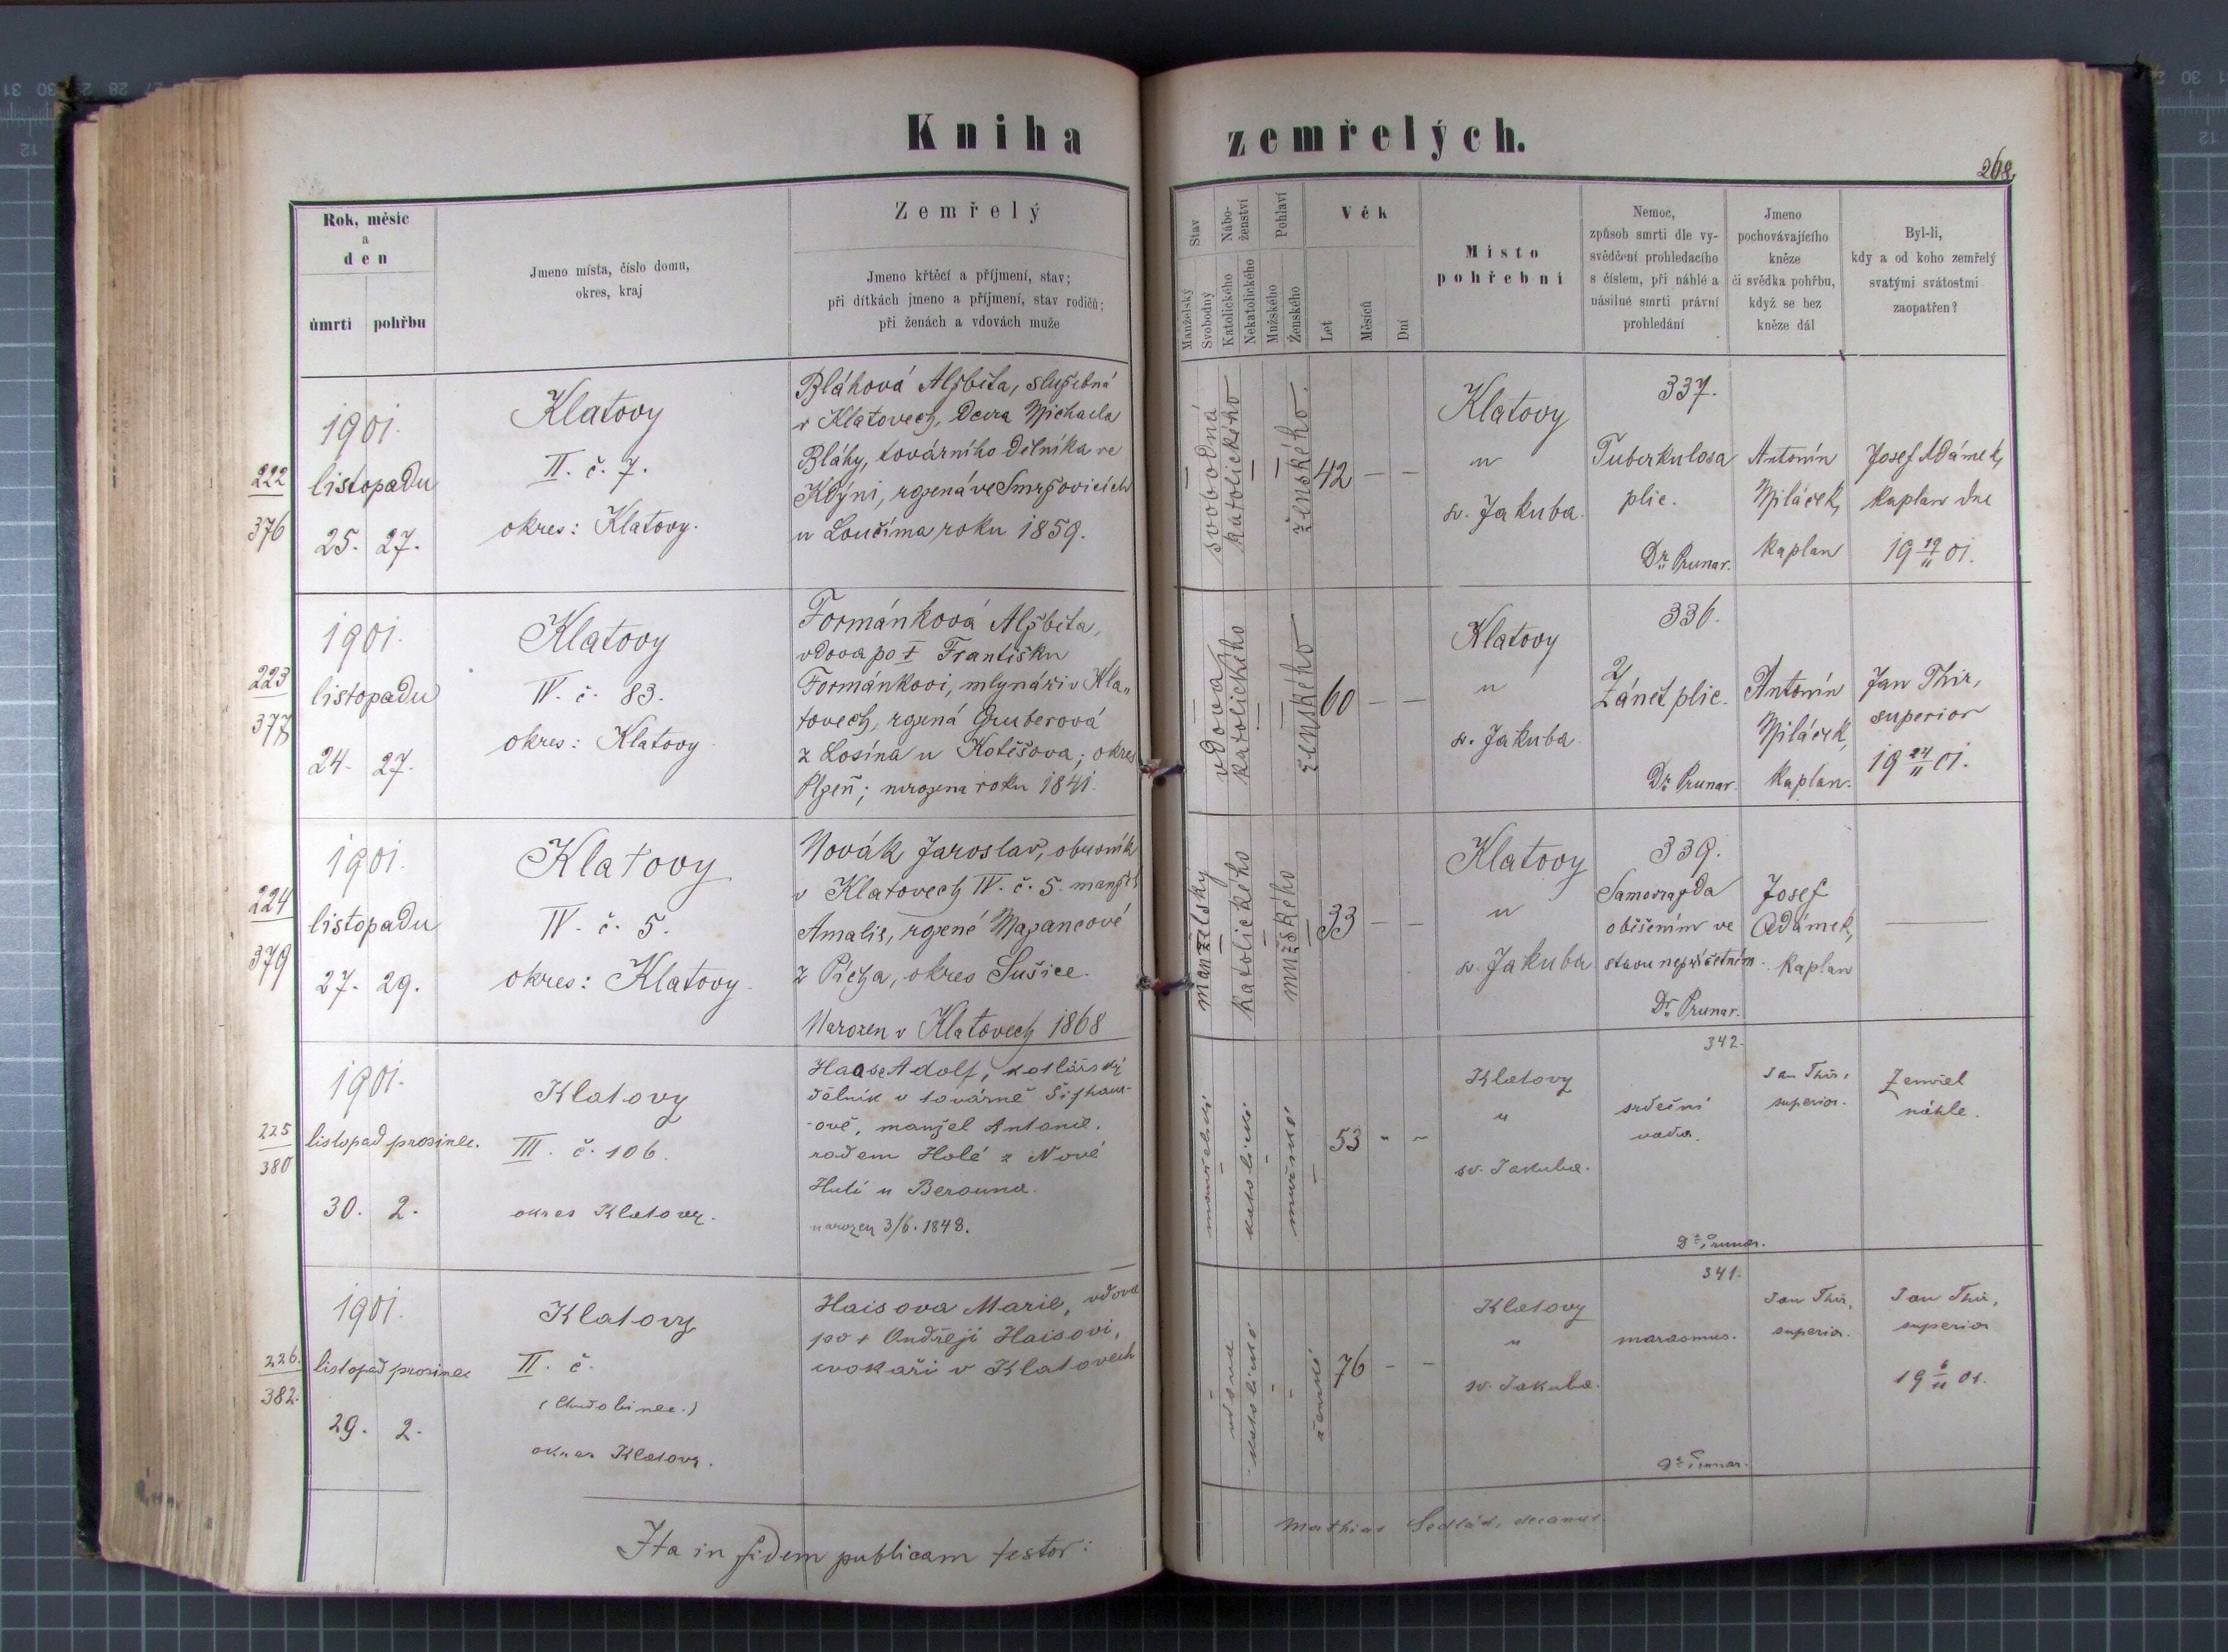 Kniha zemřelých.
268
Rok, měsíc
a
den
úmrtí
pohřbu
Jmeno místa, číslo domu,
okres, kraj
Zemřelý
Jmeno křtěcí a příjmení, stav;
při dítkách jmeno a příjmení, stav rodičů;
při ženách a vdovách muže
Stav
Manželský
Svobodný
Nábo-
ženství
Katolického
Nekatolického
Pohlaví
Mužského
Ženského
Věk
Let
Měsíců
Dní
Místo
pohřební
Nemoc,
způsob smrti dle vy-
svědčení prohledacího
s číslem, při náhlé a
násilné smrti právní
prohledání
Jmeno
pochovávajícího
kněze
či svědka pohřbu,
když se bez
kněze dál
Byl-li,
kdy a od koho zemřelý
svatými svátostmi
zaopatřen?
222
376
1901.
listopadu
25. 27.
Klatovy
II. č. 7.
okres: Klatovy.
Bláhová Alžběta, služebná
v Klatovech, dcera Michaela
Bláhy, továrního dělníka ve
Kdýni, rozená ve Smržovicích
u Loučíma roku 1859.
svobodná
katolického
ženského.
42 — —
Klatovy
u
sv. Jakuba.
337.
Tuberkulosa
plic.
Dr. Prunar.
Antonín
Miláček,
kaplan
Josef Adámek,
kaplan dne
19 19/11 01.
223
377
1901.
listopadu
24. 27.
Klatovy
IV. č. 83.
okres: Klatovy.
Formánková Alžběta,
vdova po † Františku
Formánkovi, mlynáři v Kla„
tovech, rozená Gruberová
z Losína u Kotěšova; okres
Plzeň; narozena roku 1841.
vdova
katolického
ženského
60 — —
Klatovy
u
sv. Jakuba.
336.
Zánět plic.
Dr. Prunar.
Antonín
Miláček,
kaplan.
Jan Thir,
superior
19 24/11 01.
224
379
1901.
listopadu
27. 29.
Klatovy
IV. č. 5.
okres: Klatovy.
Novák Jaroslav, obuvník
v Klatovech IV. č. 5. manžel
Amalie, rozené Mazancové
z Píchа, okres Sušice.
Narozen v Klatovech 1868
manželský
katolického
mužského
33 — —
Klatovy
u
sv. Jakuba
339.
Samovražda
oběšením ve
stavu nepříčetném.
Dr. Prunar.
Josef
Adámek,
kaplan
225
380
1901.
listopad prosinec.
30. 2.
Klatovy
III. č. 106.
okres Klatovy.
Haase Adolf, kotlářský
dělník v továrně
-ově, manžel Antonie,
rodem Holé z Nové
Huti u Berouna.
narozen 3/6. 1848.
manželský
katolické
mužské
53 - -
Klatovy
u
sv. Jakuba.
342.
srdeční
vada.
Dr. Prunar.
Jan Thir,
superior.
Zemřel
náhle.
226.
382.
1901.
listopad prosinec
29. 2.
Klatovy
II. č.
(Chudobinec.)
okres Klatovy.
Haisova Marie, vdova
po † Ondřeji Haisovi,
cvokaři v Klatovech
vdova
katolické
ženské
76 - -
Klatovy
u
sv. Jakuba.
341.
marasmus.
Dr. Prunar.
Jan Thir,
superior.
Jan Thir,
superior
19 6/11 01.
Ita in fidem publicam testor:
Mathias Sedlák, decanus.